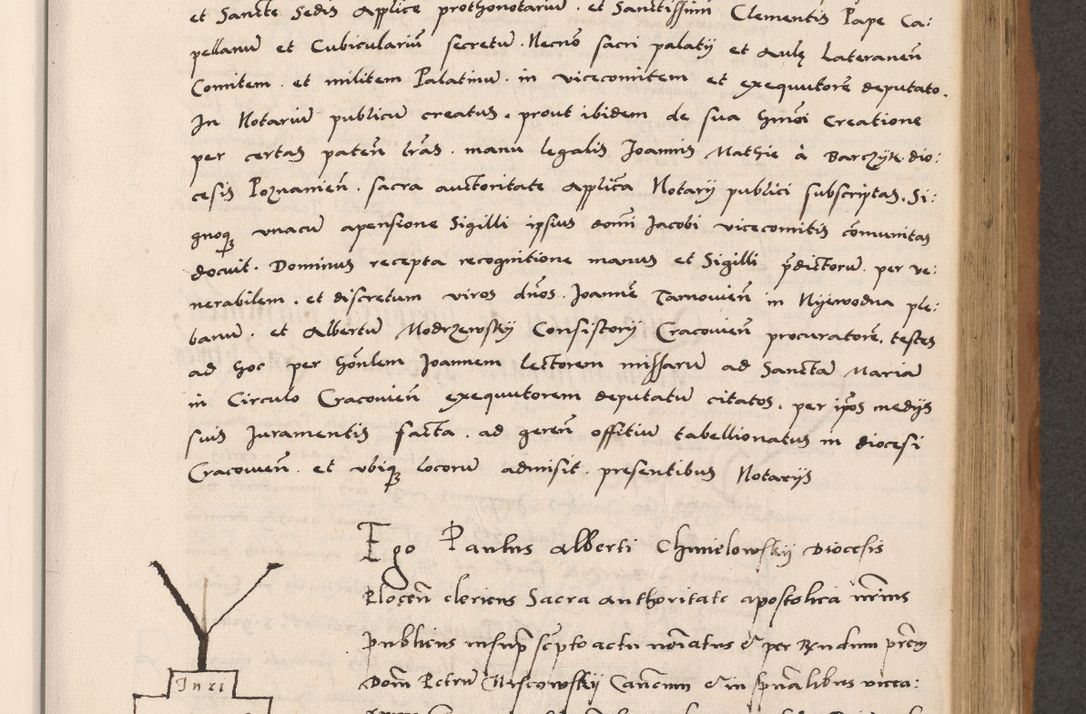 et Sancte Sedis Applice prothonotarium . et Sanctissimi Clementis Pape Ca:
pellanum et Cubicularium secretum . Necno sacri palatij et Aulę Lateraneñ
Comitem . et militem Palatinum . in vicecomitem et exequutorē deputato .
In Notarium publicum creatus . prout ibidem de sua hmoi Creatione
per certas pateñ lras . manu legalis Joannis Mathie à Barczyk . dio:
cesis Poznanieñ . sacra auctoritate Applica Notarij publici subscriptas . Si:
gnoq vnacum apensione Sigilli ipsius domi Jacobi vicecomitis comunitas
docuit . Dominus recepta recognitione manus et Sigilli pdictorum . per ve:
nerabilem . et discretum viros dnos . Joannē Tarnowieñ in Nyewodna ple:
banum . et Albertum Modrzewskij Consistorij Cracovieñ procuratorē, testes
ad hoc per honlem Joannem lectorem missarum ad Sanctam Mariam
in Circulo Cracovieñ exequutorem deputatum citatos . per ipos medijs
suis Juramentis facta . ad gereñ offitium tabellionatus in diocesi
Cracovieñ . et vbiq locorum admisit . presentibus Notarijs
Ego Paulus Alberti Chmielowskij Diocesis
Plocen clericus Sacra authoritate apostolica
publicus insup scripto actu noiatus & per Rndum
Dom Petrum Miscowskij & in
Inri